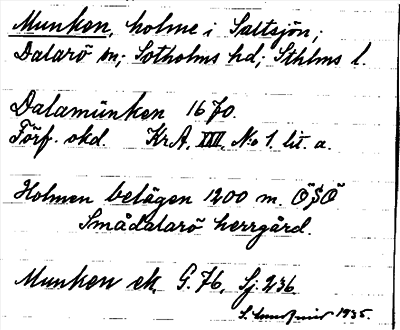 Munken, holme i Saltsjön;
Dalarö sn; Sotholms hd; Sthlms l.
Dalamünken 1670.
Förf. okd. KrA, XIII, No 1 lit. a.
Holmen belägen 1200 m. ÖSÖ
Smådalarö herrgård.
Munken ek. G. 76, Sj. 236
S. 1935.